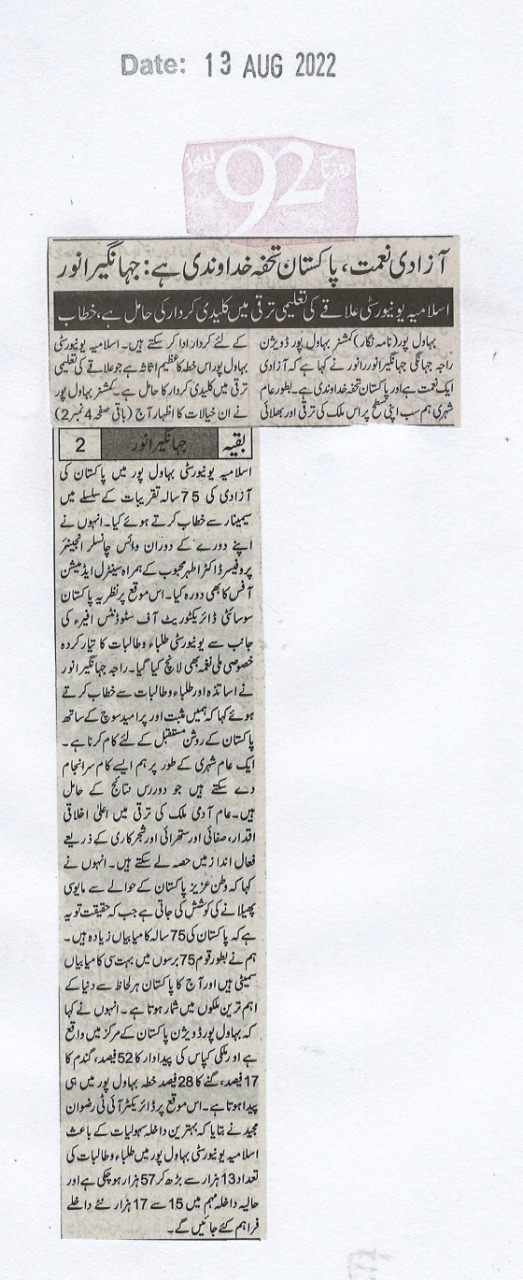 Date: 13 AUG 2022
روزنامہ 92 نیوز
آزادی نعمت، پاکستان تحفہ خداوندی ہے: جہانگیر انور
اسلامیہ یونیورسٹی علاقے کی تعلیمی ترقی میں کلیدی کردار کی حامل ہے، خطاب
بہاول پور (نامہ نگار) کمشنر بہاول پور ڈویژن
راجہ جہانگی جہانگیر انور انور نے کہا ہے کہ آزادی
ایک نعمت ہے اور پاکستان تحفہ خداوندی ہے۔ بطور عام
شہری ہم سب اپنی سطح پر اس ملک کی ترقی اور بھلائی
کے لئے کردار ادا کر سکتے ہیں۔ اسلامیہ یونیورسٹی
بہاول پور اس خطہ کا عظیم اثاثہ ہے جو علاقے کی تعلیمی
ترقی میں کلیدی کردار کا حامل ہے۔ کمشنر بہاول پور
نے ان خیالات کا اظہار آج (باقی صفحہ 4 نمبر 2)
بقیہ جہانگیر انور 2
اسلامیہ یونیورسٹی بہاول پور میں پاکستان کی
آزادی کی 75 سالہ تقریبات کے سلسلے میں
سیمینار سے خطاب کرتے ہوئے کیا۔ انہوں نے
اپنے دورے کے دوران وائس چانسلر انجینئر
پروفیسر ڈاکٹر اطہر محبوب کے ہمراہ سینٹرل ایڈمیشن
آفس کا بھی دورہ کیا۔ اس موقع پر نظریہ پاکستان
سوسائٹی ڈائریکٹوریٹ آف سٹوڈنٹس افیرز کی
جانب سے یونیورسٹی طلباء و طالبات کا تیار کردہ
خصوصی ملی نغمہ بھی لانچ کیا گیا۔ راجہ جہانگیر انور
نے اساتذہ اور طلباء و طالبات سے خطاب کرتے
ہوئے کہا کہ ہمیں مثبت اور پر امید سوچ کے ساتھ
پاکستان کے روشن مستقبل کے لئے کام کرنا ہے۔
ایک عام شہری کے طور پر ہم ایسے کام سرانجام
دے سکتے ہیں جو دوررس نتائج کے حامل
ہیں۔ عام آدمی ملک کی ترقی میں اعلیٰ اخلاقی
اقدار، صفائی اور ستھرائی اور شجرکاری کے ذریعے
فعال انداز میں حصہ لے سکتے ہیں۔ انہوں نے
کہا کہ وطن عزیز پاکستان کے حوالے سے مایوسی
پھیلانے کی کوشش کی جاتی ہے جب کہ حقیقت تو یہ
ہے کہ پاکستان کی 75 سالہ کامیابیاں زیادہ ہیں۔
ہم نے بطور قوم 75 برسوں میں بہت سی کامیابیاں
سمیٹی ہیں اور آج کا پاکستان ہر لحاظ سے دنیا کے
اہم ترین ملکوں میں شمار ہوتا ہے۔ انہوں نے کہا
کہ بہاول پور ڈویژن پاکستان کے مرکز میں واقع
ہے اور ملکی کپاس کی پیداوار کا 52 فیصد، گندم کا
17 فیصد، گنے کا 28 فیصد خطہ بہاول پور میں ہی
پیدا ہوتا ہے۔ اس موقع پر ڈائریکٹر آئی ٹی رضوان
مجید نے بتایا کہ بہترین داخلہ سہولیات کے باعث
اسلامیہ یونیورسٹی بہاول پور میں طلباء و طالبات کی
تعداد 13 ہزار سے بڑھ کر 57 ہزار ہو چکی ہے اور
حالیہ داخلہ مہم میں 15 سے 17 ہزار نئے داخلے
فراہم کئے جائیں گے۔